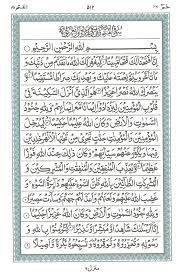 ٥١٢
بسم الله الرحمن الرحيم
إنا فتحنا لك فتحا مبينا ليغفر لك الله ما تقدم من ذنبك وما
تأخر ويتم نعمته عليك ويهديك صراطا مستقيما
وينصرك الله نصرا عزيزا هو الذي أنزل السكينة في
قلوب المؤمنين ليزدادوا إيمانا مع إيمانهم ولله جنود
السموت والأرض وكان الله عليما حكيما ليدخل
المؤمنين والمؤمنت جنت تجري من تحتها الأنهر خلدين
فيها ويكفر عنهم سيئاتهم وكان ذلك عند الله فوزا
عظيما ويعذب المنفقين والمنفقت والمشركين و
المشركت الظانين بالله ظن السوء عليهم دائرة السوء و
غضب الله عليهم ولعنهم وأعد لهم جهنم وساءت مصيرا
ولله جنود السموت والأرض وكان الله عزيزا حكيما
إنا أرسلنك شاهدا ومبشرا ونذيرا لتؤمنوا بالله و
رسوله وتعزروه وتوقروه وتسبحوه بكرة وأصيلا